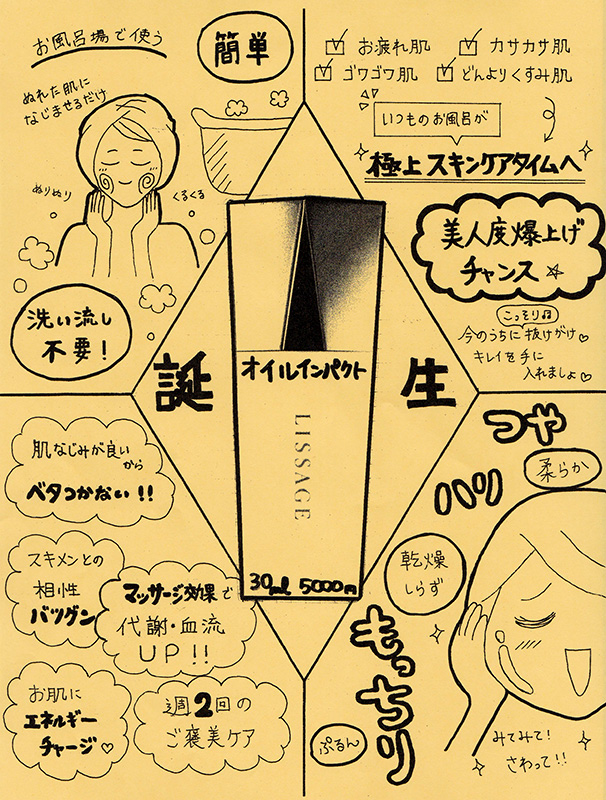 お風呂場で使う
簡単
ぬれた肌に
なじませるだけ
ぬりぬり
くるくる
洗い流し
不要!
お疲れ肌
カサカサ肌
ゴワゴワ肌
どんよりくすみ肌
いつものお風呂が
極上スキンケアタイムへ
美人度爆上げ
チャンス
こっそり♫
今のうちに抜けがけ♡
キレイを手に
入れましょ♡
誕
生
オイルインパクト
LISSAGE
30ml 5000円
肌なじみが良い
から
ベタつかない!!
スキメンとの
相性
バツグン
マッサージ効果で
代謝・血流
UP!!
お肌に
エネルギー
チャージ♡
週2回の
ご褒美ケア
つや
ハリ
柔らか
乾燥
しらず
もっちり
ぷるん
みてみて!
さわって!!